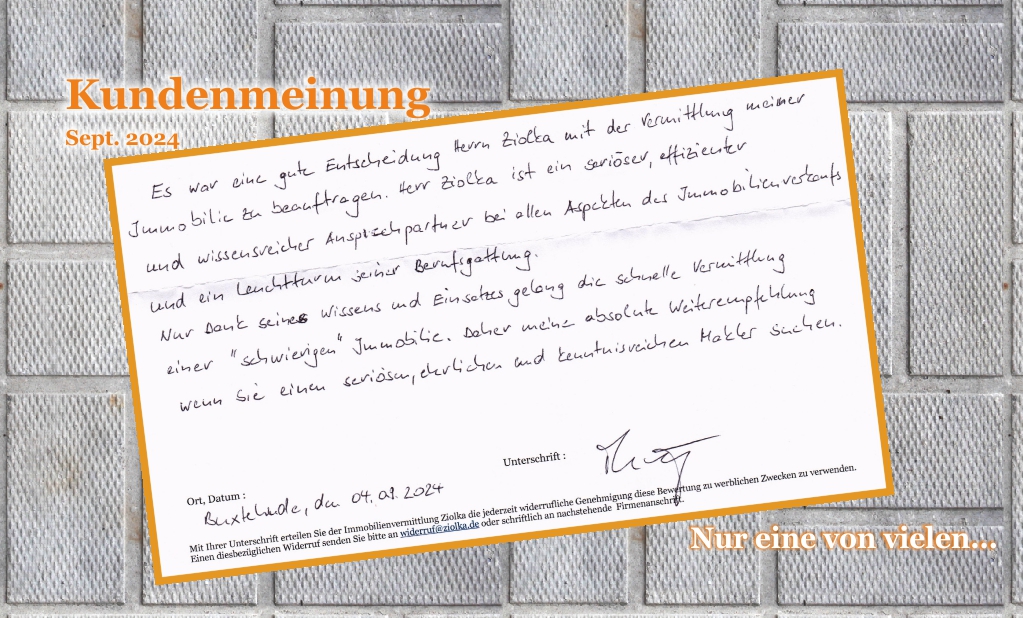 Kundenmeinung
Sept. 2024
Es war eine gute Entscheidung Herrn Ziolka mit der Vermittlung meiner
Immobilie zu beauftragen. Herr Ziolka ist ein seriöser, effizienter
und wissensreicher Ansprechpartner bei allen Aspekten des Immobilienverkaufs
und ein Leuchtturm seiner Berufsgattung.
Nur Dank seines Wissens und Einsatzes gelang die schnelle Vermittlung
einer "schwierigen" Immobilie. Daher meine absolute Weiterempfehlung
wenn Sie einen seriösen, ehrlichen und kenntnisreichen Makler suchen.
Unterschrift :
Ort, Datum :
Buxtehude, den 04.09.2024
Mit Ihrer Unterschrift erteilen Sie der Immobilienvermittlung Ziolka die jederzeit widerrufliche Genehmigung diese Bewertung zu werblichen Zwecken zu verwenden.
Einen diesbezüglichen Widerruf senden Sie bitte an widerruf@ziolka.de oder schriftlich an nachstehende Firmenanschrift.
Nur eine von vielen...